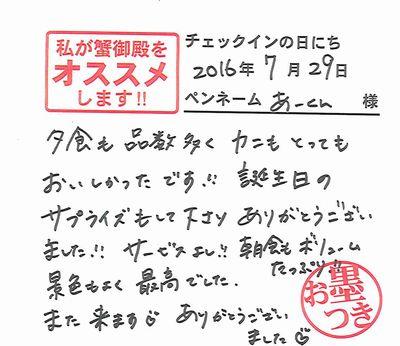 私が蟹御殿を
オススメ
します!!
チェックインの日にち
2016年7月29日
ペンネーム あーくん 様
夕食も 品数多く カニも とっても
おいしかったです!! 誕生日の
サプライズもして下さり ありがとうござい
ました!! サービスよし!! 朝食も ボリューム
たっぷり!!
景色もよく 最高でした.
また 来ます ありがとうござい
ました
お墨つき